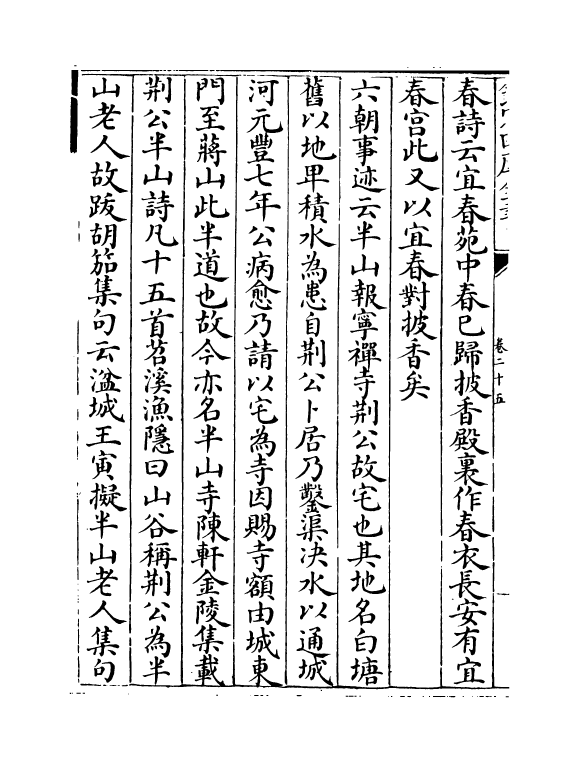 卷二十五
春詩云宜春苑中春已歸披香殿裏作春衣長安有宜
春宫此又以宜春對披香矣
六朝事迹云半山報寧禪寺荆公故宅也其地名白塘
舊以地卑積水為患自荆公卜居乃鑿渠决水以通城
河元豐七年公病愈乃請以宅為寺因賜寺額由城東
門至蔣山此半道也故今亦名半山寺陳軒金陵集載
荆公半山詩凡十五首苕溪漁隱曰山谷稱荆公為半
山老人故跋胡笳集句云湓城王寅擬半山老人集句